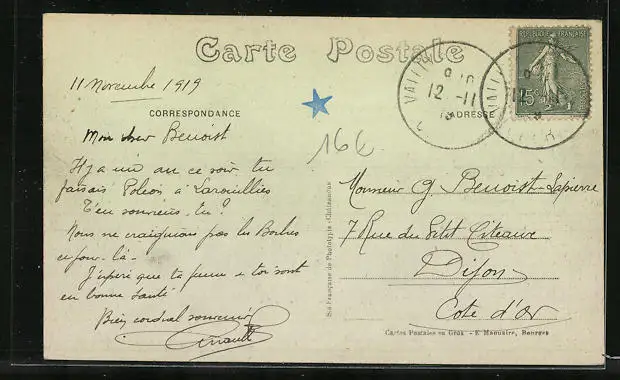 Carte Postale
11 Novembre 1919
CORRESPONDANCE
ADRESSE
Mon cher Benoist
Il y a un an ce soir tu
faisais Poleon à Larouillies
T'en souviens-tu?
Nous ne craignions pas les Boches
ce jour-là-
J'espère que ta femme & toi sont
en bonne santé
Bien cordial souvenir
16€
Monsieur G. Benoist-Lapierre
7 Rue du Petit Citeaux
Dijon
Cote d'or
Sté Française de Phototypie - Châteaudun
Cartes Postales en Gros - E. Maquaire, Bourges
REPUBLIQUE FRANÇAISE
15c
12 -11